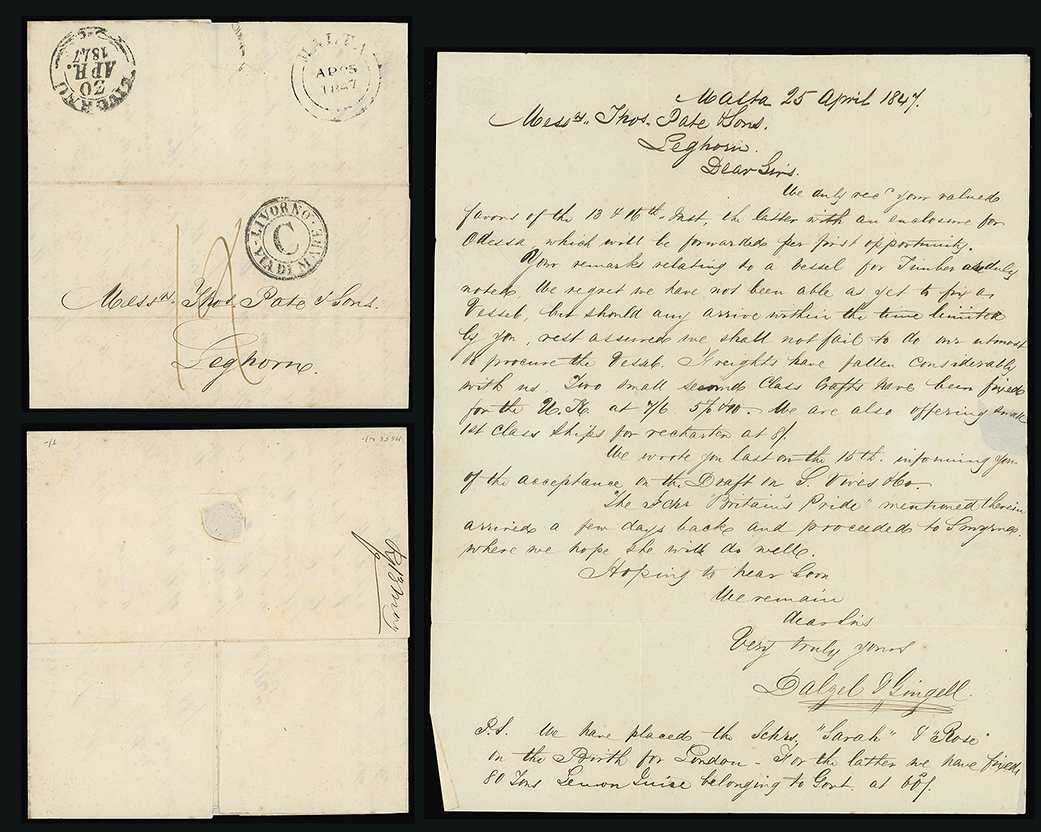 LIVORNO
30
APR.
1847
MALTA
AP 25
1847
LIVORNO
C
VIA DI MARE
Messrs. Thos. Pate & Sons.
Leghorn.
Malta 25 April 1847.
Messrs. Thos. Pate & Sons.
Leghorn.
Dear Sirs.
We duly recd your valued
favors of the 13 & 16th Inst, the latter with an enclosure for
Odessa, which will be forwarded per first opportunity.
Your remarks relating to a vessel for Timber are duly
noted. We regret we have not been able as yet to fix a
Vessel, but should any arrive within the time limited
by you, rest assured we shall not fail to do our utmost
to procure the Vessel. Freights have fallen considerably
with us. Two small second Class Crafts have been fixed
for the U.K. at 7/6. We are also offering small
1st Class Ships for recharter at 8/.
We wrote you last on the 15th. informing you
of the acceptance on the Draft on S. Vives & Co.
The Schr "Britain's Pride" mentioned therein
arrived a few days back and proceeded to Smyrna
where we hope she will do well.
Hoping to hear soon
We remain
dear Sirs
Very truly yours
Dalzel & Gingell.
P.S. We have placed the Schrs, "Sarah" & "Rose"
on the Birth for London - For the latter we have fixed
80 Tons Lemon Juice belonging to Govt. at 60/.